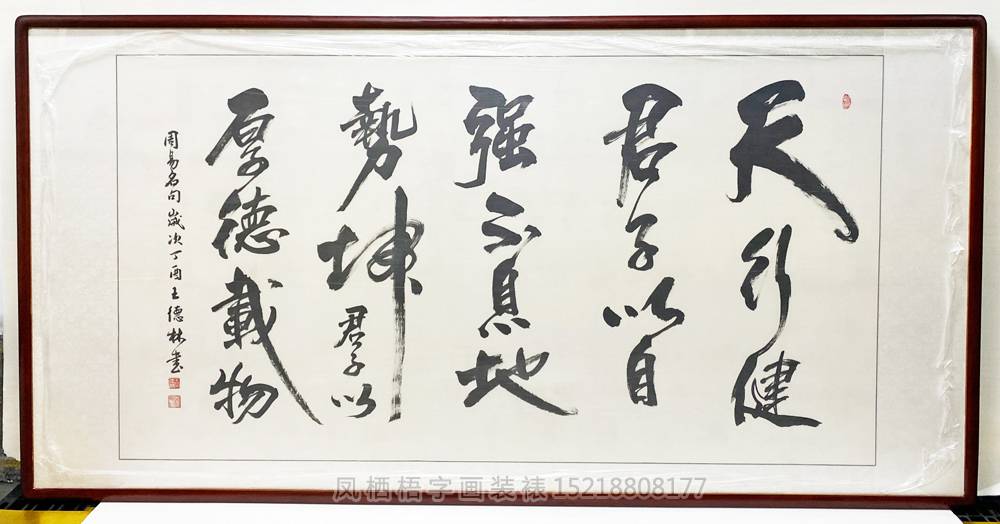 天行健
君子以自
强不息地
勢坤君子以
厚德載物
周易名句歲次丁酉王德林書
凤栖梧字画装裱15218808177